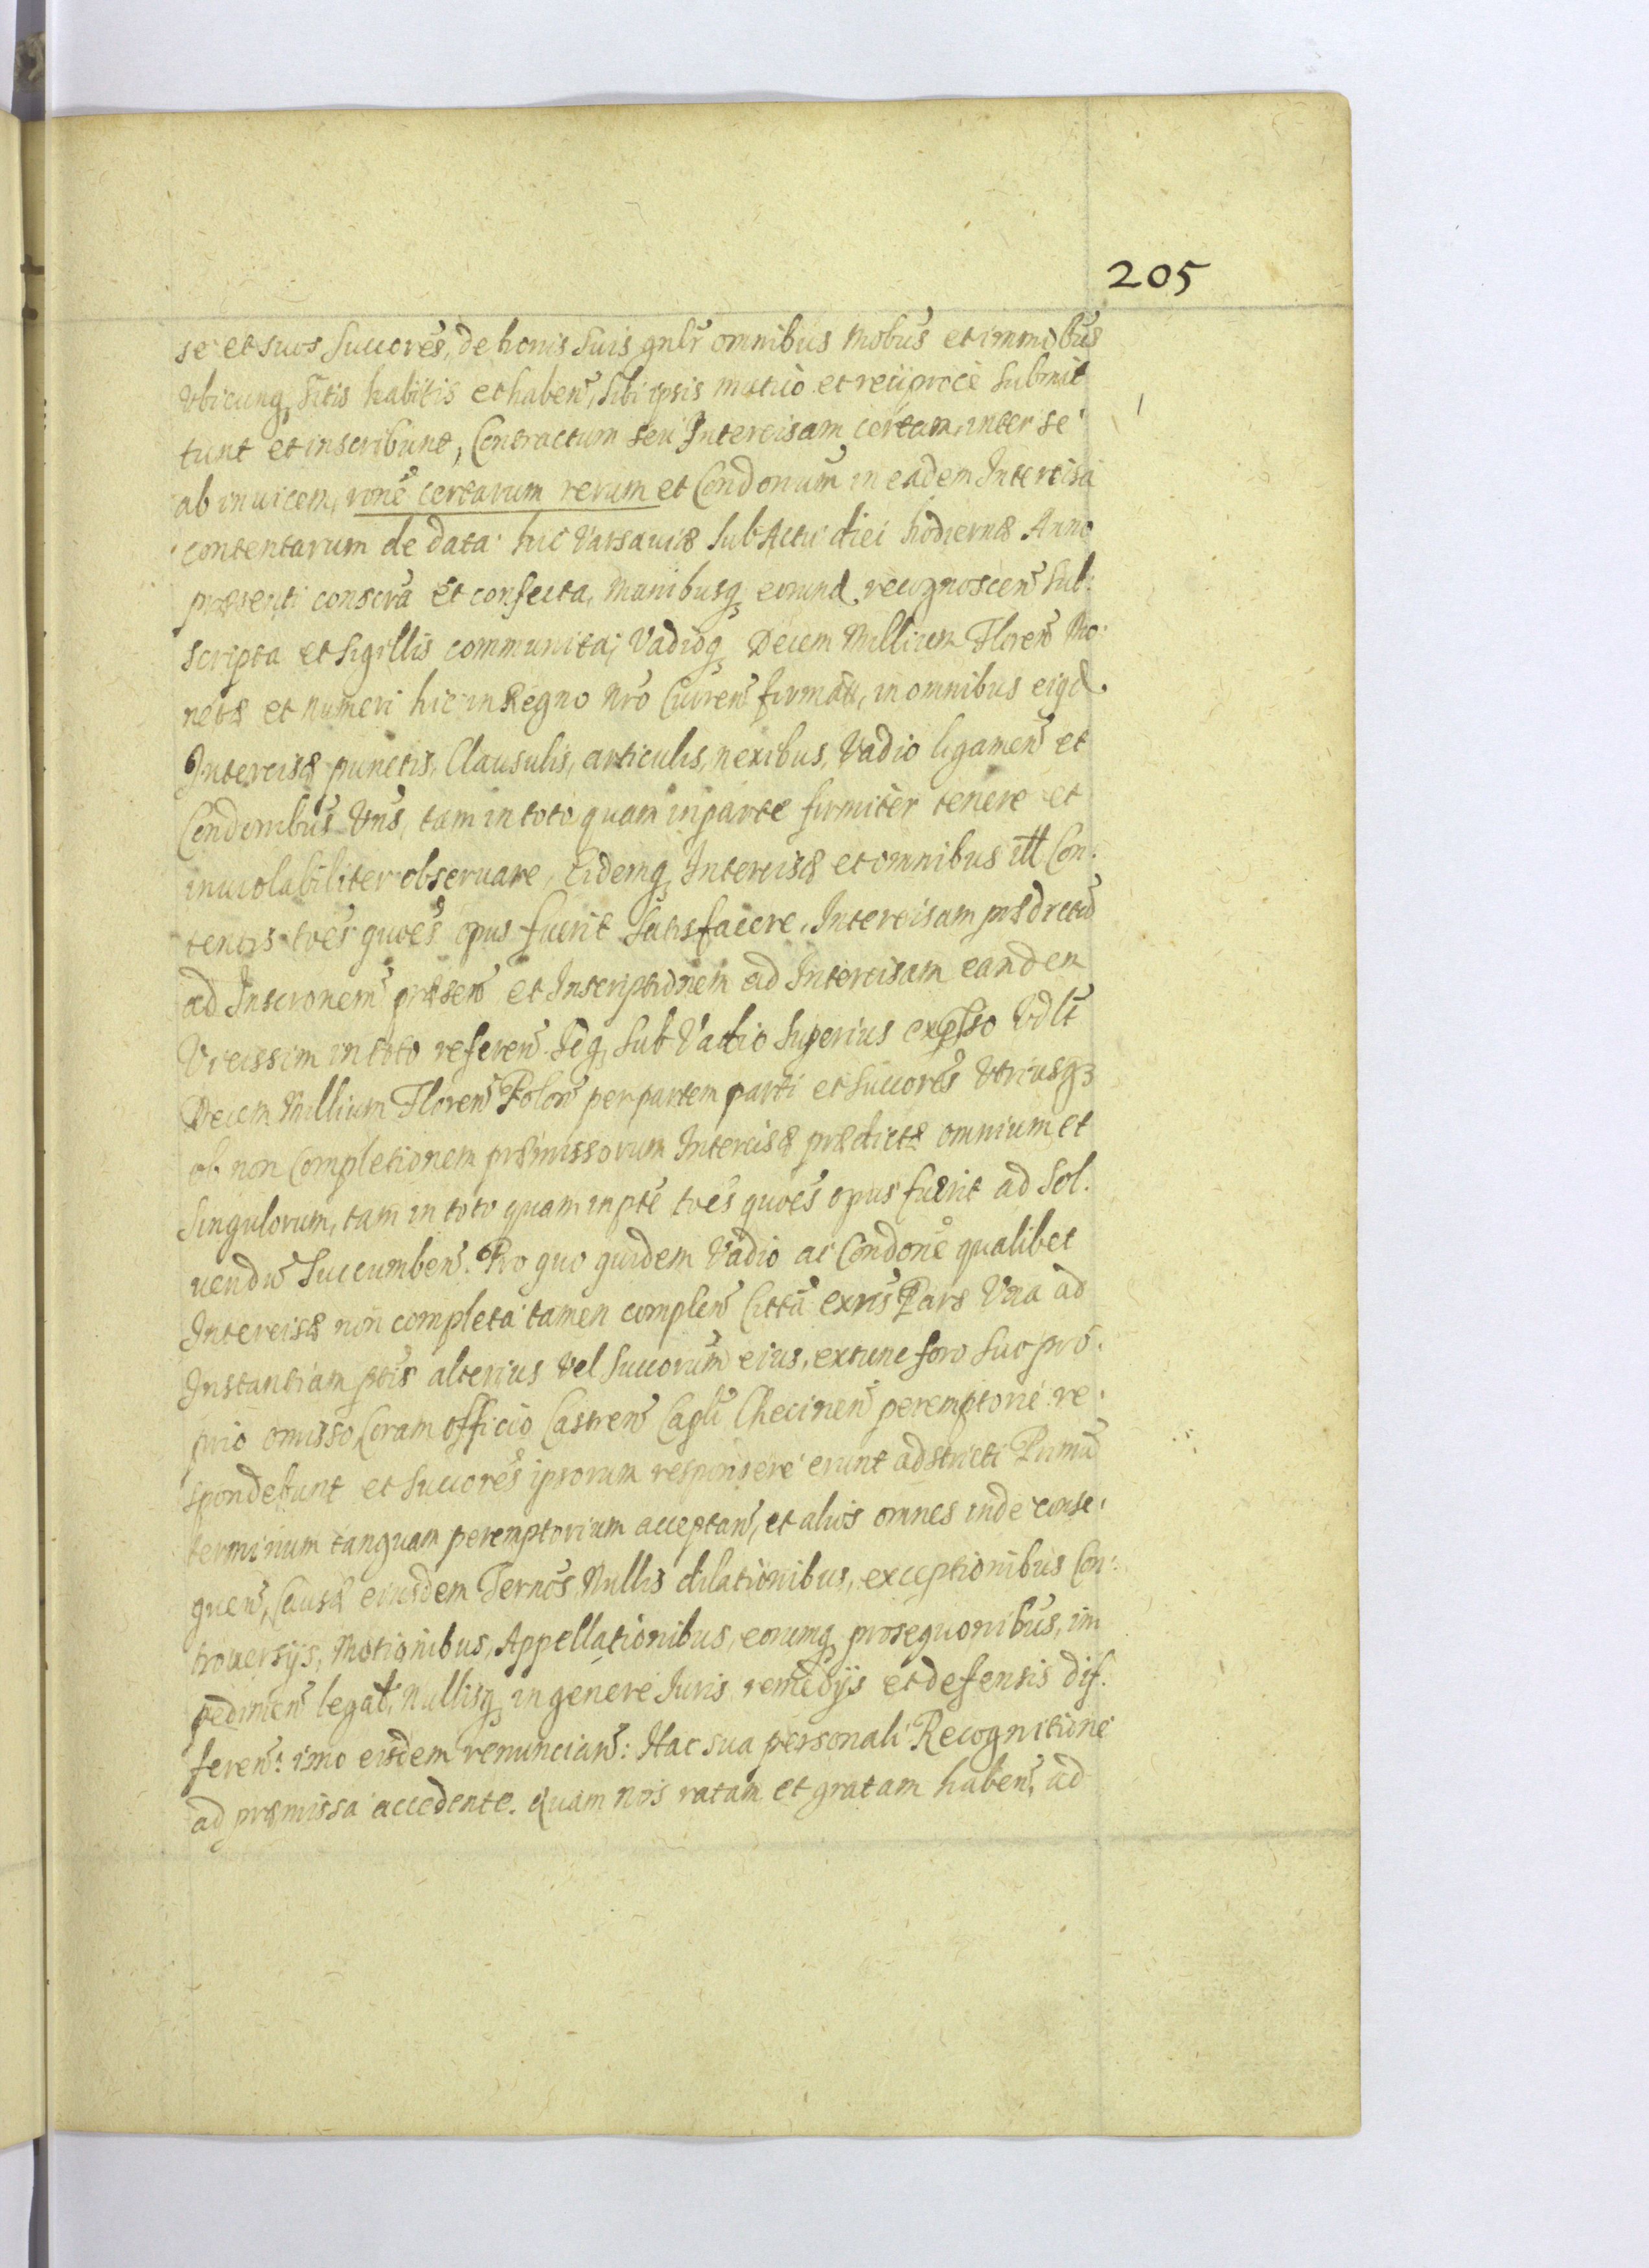 205
se et suos Succores, de bonis Suis gnlr omnibus Mobus et immobus
Vbicunq Sitis habitis et haben, Sibi ipsis mutuo et reciproce Submit
tunt et inscribunt, Contractum seu Intercisam certam, inter se
ab inuicem, rone certarum rerum et Condonum in eadem Intercisa
contentarum de data huc Varsauiæ Sub Actu diei hodiernæ Anno
præsenti conscra et confecta, Manibusq eorund recognoscen Sub:
scripta et Sigillis communita, Vadioq Decem Millium Floren Mo:
netæ et numeri hic in Regno Nro Curren firmata, in omnibus eiqd
Intercisæ punctis, Clausulis, articulis, nexibus, Vadio ligamen et
Condonibus Vnis, tam in toto quam in parte firmiter tenere et
inuiolabiliter obseruare, Eidemq Intercisæ et omnibus itt Con:
tentis toes quoes opus fuerit Satisfacere. Intercisam prædictã
ad Inscronem præsen et Inscriptionem ad Intercisam eandem
Vicissim in toto referen. Seq Sub Vadio Superius expsso Vdlt
Decem Millium Floren Polon per partem parti et Succores Vtriusqz
ob non Completionem præmissorum Intercisæ prædictæ omnium et
Singulorum, tam in toto quam in pte toes quoes opus fuerit ad Sol:
uendũ Succumben. Pro quo quidem Vadio ac Condone qualibet
Intercisæ non completa tamen complen Citta exns Pars Vna ad
Instantiam ptis alterius Vel Succorum eius, extunc foro Suo pro:
prio omisso, Coram officio Castren Capli Checinen peremptorie re:
spondebunt et Succores ipsorum respondere erunt adstricti Primũ
terminum tanquam peremptorium acceptan, et alios omnes inde conse:
quen, Causæ eiusdem Ternos, Nullis dilationibus, exceptionibus Con:
trouersijs, Motionibus, Appellationibus, eorumq prosequonibus, im
pedimen legal, Nullisq in genere Iuris remedijs et defensis dif:
feren: imo eisdem renuncian: Hac sua personali Recognitione
ad præmissa accedente. Quam nos ratam et gratam haben, ad